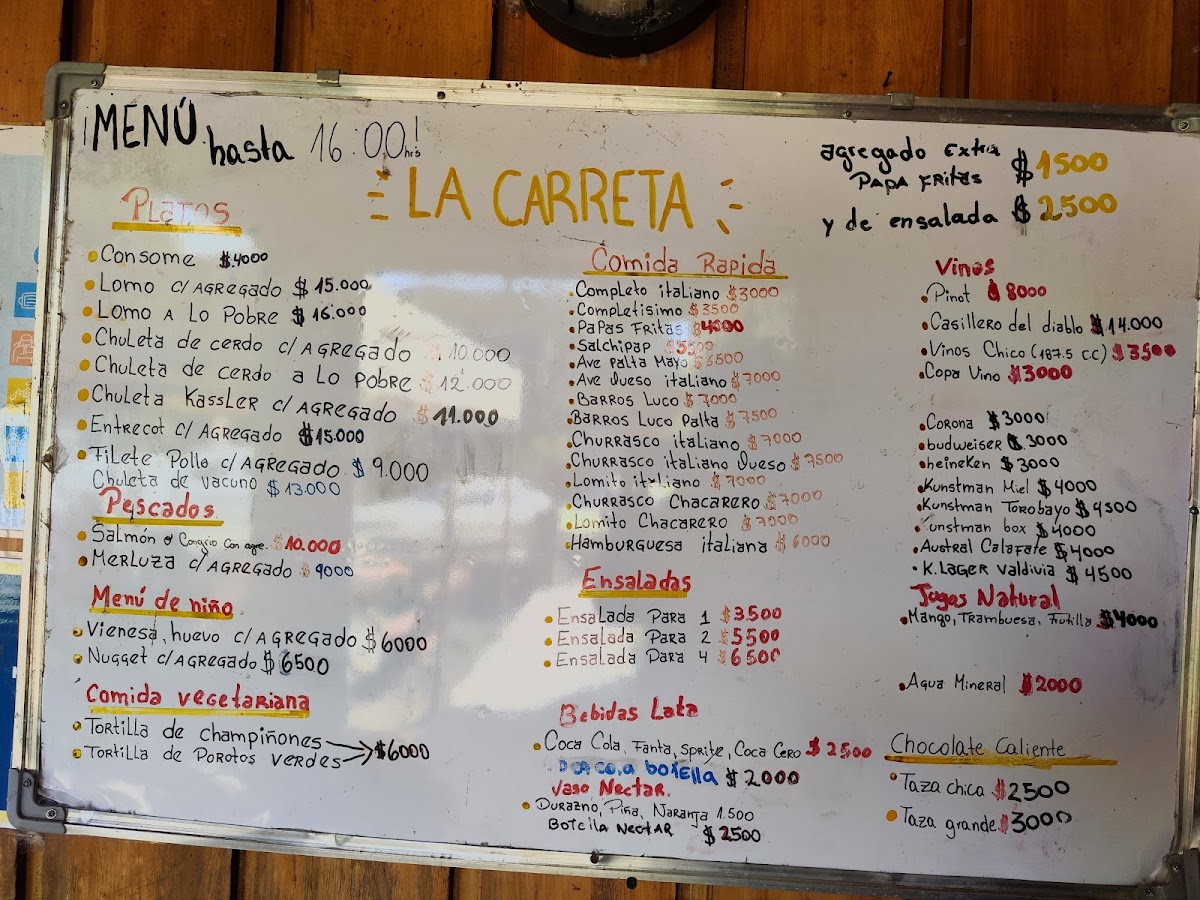 ¡MENÚ hasta 16:00hrs!
LA CARRETA
agregado Extra
PAPA FRITAS $1500
y de ensalada $2500
Platos
Consome $4000
Lomo c/AGREGADO $15.000
Lomo A Lo Pobre $16.000
Chuleta de cerdo c/AGREGADO $10.000
Chuleta de cerdo a Lo Pobre $12.000
Chuleta Kassler c/AGREGADO $11.000
Entrecot c/AGREGADO $15.000
Filete Pollo c/AGREGADO $9.000
Chuleta de vacuno $13.000
Pescados
Salmón o Congrio con agre. $10.000
Merluza c/AGREGADO $9000
Menú de niño
Vienesa, huevo c/AGREGADO $6000
Nugget c/AGREGADO $6500
Comida vegetariana
Tortilla de champiñones
Tortilla de Porotos verdes $6000
Comida Rapida
Completo italiano $3000
Completisimo $3500
PaPas Fritas $4000
Salchipap $5500
Ave Palta Mayo $6500
Ave Queso italiano $7000
Barros Luco $7000
Barros Luco Palta $7500
Churrasco italiano $7000
Churrasco italiano Queso $7500
Lomito italiano $7000
Churrasco Chacarero $7000
Lomito Chacarero $7000
Hamburguesa italiana $6000
Ensaladas
Ensalada Para 1 $3500
Ensalada Para 2 $5500
Ensalada Para 4 $6500
Bebidas Lata
Coca Cola, Fanta, Sprite, Coca Cero $2500
botella $2000
Vaso Nectar.
Durazno, Piña, Naranja 1.500
Botella Nectar $2500
Vinos
Pinot $8000
Casillero del diablo $14.000
Vinos Chico (187.5 CC) $3500
Copa Vino $3000
Corona $3000
budweiser $3000
heineken $3000
Kunstman Miel $4000
Kunstman Torobayo $4500
Kunstman box $4000
Austral Calafate $4000
K.LAGER Valdivia $4500
Jugos Natural
Mango, Frambuesa, Frutilla $4000
Agua Mineral $2000
Chocolate Caliente
Taza chica $2500
Taza grande $3000